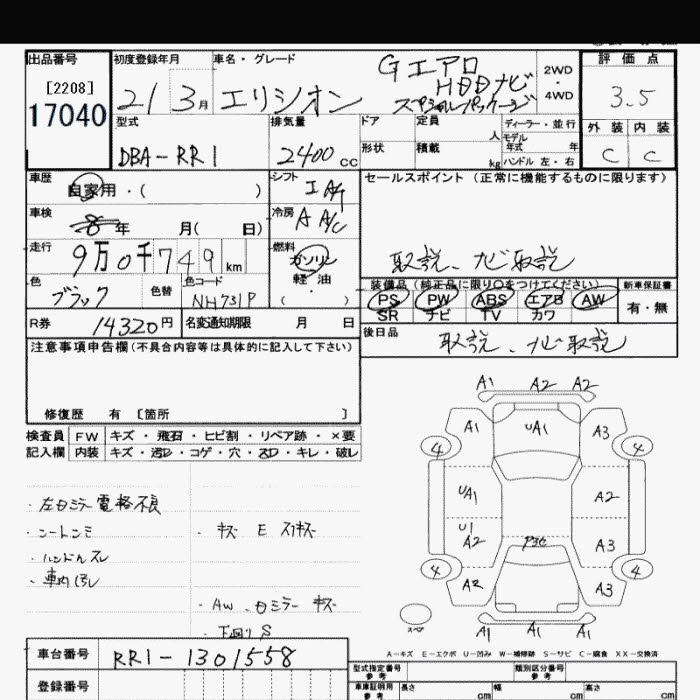 出品番号 初度登録年月 車名・グレード 評価点
[2208]
17040
21 3月 エリシオン
Gエアロ
HDDナビ
スペシャルパッケージ
2WD
4WD
3.5
型式 排気量 ドア 定員 人 ディーラー・並行
モデル年式 年
外装 内装
DBA-RR1 2400cc 形状 積載 kg ハンドル 左・右
C C
車歴 自家用・( ) シフト IAT セールスポイント (正常に機能するものに限ります)
車検 8年 月( 日) 冷房 AA/C
走行 9万0千749km 燃料 ガソリン 軽油・( )
取説、ナビ取説
色 ブラック 色替 色コード NH731P
装備品(純正品に限り○をつけてください) 新車保証書
PS PW ABS エアB AW 有・無
SR ナビ TV カワ
R券 14320円 名変通知期限 月 日
後日品 取説、ナビ取説
注意事項申告欄(不具合内容等は具体的に記入して下さい)
修復歴 有 [箇所 ]
検査員 FW キズ・飛石・ヒビ割・リペア跡・×要
記入欄 内装 キズ・汚レ・コゲ・穴・スレ・キレ・破レ
・左ロミラー電格不良
・シートシミ
・ハンドルスレ
・車内汚レ
・キズ E スリキズ
・AW、ロミラー キズ
・下廻りS
A1 A2 A2
A1 UA1 A3
4 4
UA1 A2
U1
A2 A3
4 4
A2 A3
A1 A1 A1
スペア
A-キズ E-エクボ U-凹み W-補修跡 S-サビ C-腐食 XX-交換済
車台番号 RR1-1301558
登録番号
型式指定番号 参考 類別区分番号 参考
車庫証明用 参考 長さ cm 幅 cm 高さ cm